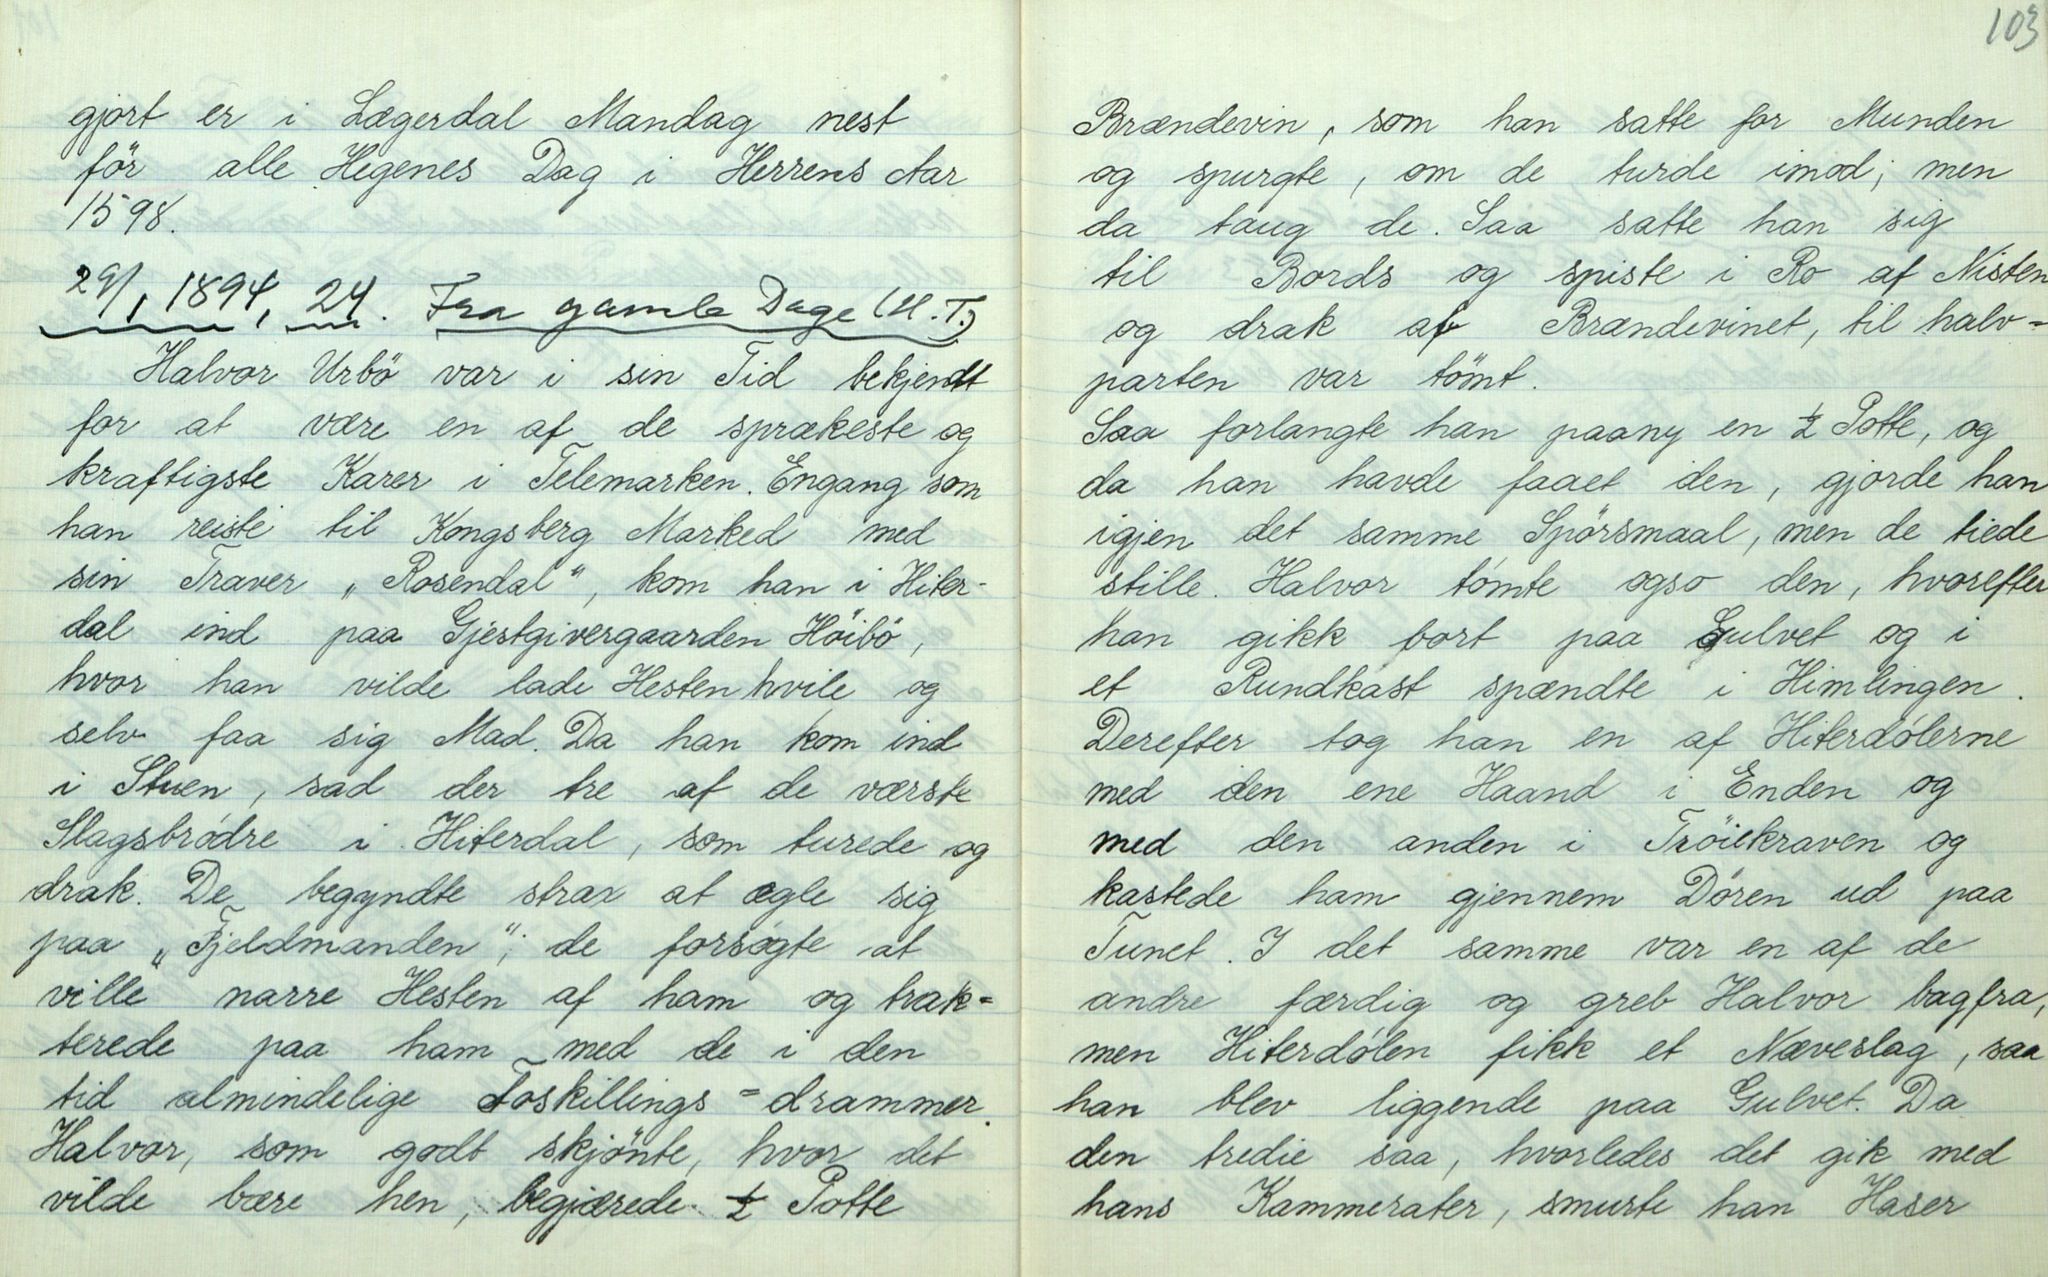 gjort er i Lægerdal Mandag nest
för alle Hegenes Dag i Herrens Aar
1598.
29/1 1894, 24. Fra gamle Dage (U. T.)
Halvor Urbö var i sin Tid bekjendt
for at være en af de sprækeste og
kraftigste Karer i Telemarken. Engang som
han reiste til Kongsberg Marked med
sin Traver „Rosendal“, kom han i Hiter-
dal ind paa Gjestgivergaarden Höibö,
hvor han vilde lade Hesten hvile og
selv faa sig Mad. Da han kom ind
i Stuen, sad der tre af de værste
Slagsbródre i Hiterdal, som turede og
drak. De begyndte strax at ægle sig
paa „Fjeldmanden“; de forsøgte at
ville narre Hesten af ham og trak=
terede paa ham med de i den
tid almindelige Toskillings=drammer.
Halvor, som godt skjönte, hvor det
vilde bære hen, begjærede ½ Potte
103
Brændevin, som han satte for Munden
og spurgte, om de turde imod; men
da taug de. Saa satte han sig
til Bords og spiste i Ro af Nisten
og drak af Brændevinet, til halv=
parten var tömt.
Saa forlangte han paany en ½ Potte, og
da han havde faaet den, gjorde han
igjen det samme Spörsmaal, men de tiede
stille. Halvor tómte ogso den, hvorefter
han gikk bort paa Gulvet og i
et Rundkast spændte i Himlingen.
Derefter tog han en af Hiterdólerne
med den ene Haand i Enden og
med den anden i Tröiekraven og
kastede ham gjennem Dören ud paa
Tunet. I det samme var en af de
andre færdig og greb Halvor bagfra,
men Hiterdólen fikk et Næveslag, saa
han blev liggende paa Gulvet. Da
den tredie saa, hvorledes det gik med
hans Kammerater, smurte han Haser